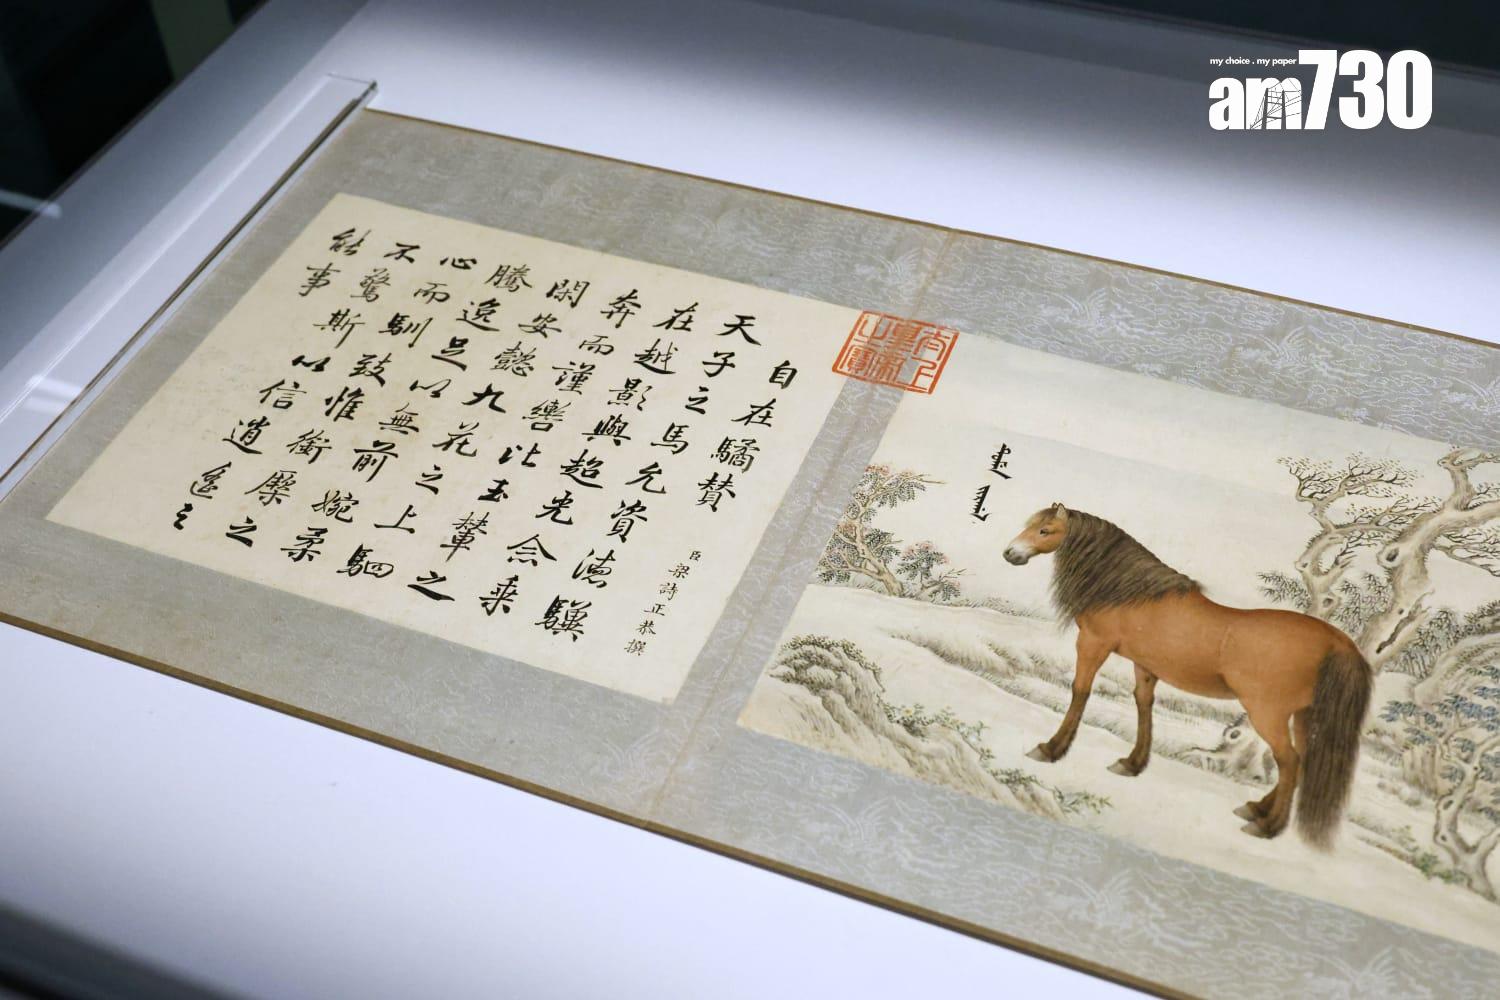 am730
my choice . my paper
自在驈贊
臣梁詩正恭撰
天子之馬允資德驥
在越影與超光念乘
奔而謹轡比玉輦之
閑安懿九花之上駟
騰逸足以無前婉柔
心而馴致惟銜橜之
不驚斯以信逍遙之
能事
太上皇帝之寶